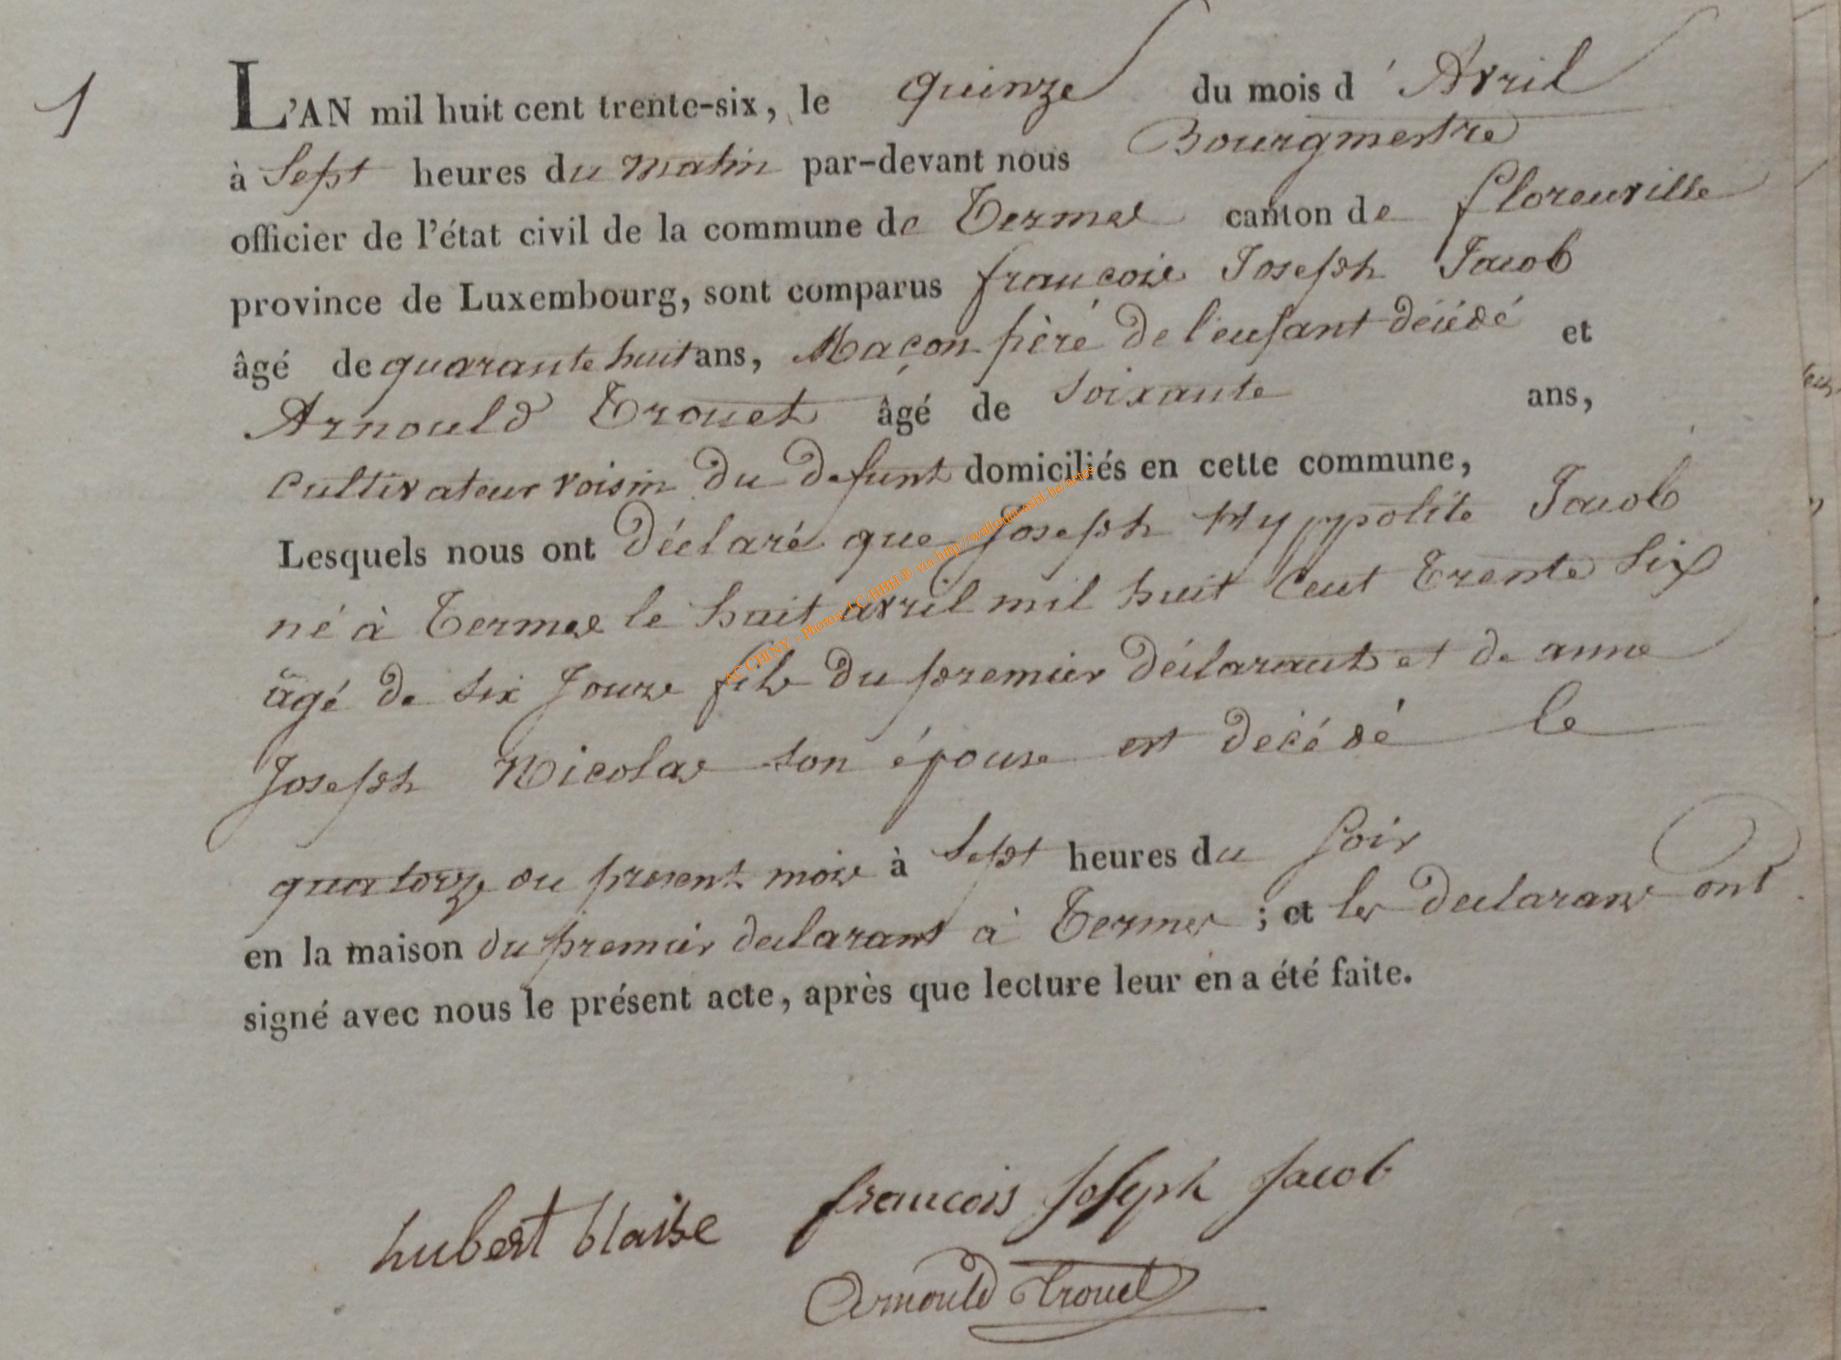 1
L'AN mil huit cent trente-six, le quinze du mois d'Avril
à Sept heures du matin par-devant nous Bourgmestre
officier de l'état civil de la commune de Termes canton de florenville
province de Luxembourg, sont comparus françois Joseph Jacob
âgé de quarante huit ans, Maçon pèré de l'enfant décédé et
Arnould Trouet âgé de soixante ans,
cultivateur voisin du defunt domiciliés en cette commune,
Lesquels nous ont déclaré que Joseph Hyppolite Jacob
né à Termes le huit avril mil huit Cent Trente Six
âgé de six Jours fils du premier déclarant et de anne
Joseph Nicolas son épouse est décédé le
quatorze du present mois à Sept heures du Soir
en la maison du premier declarant à Termes ; et les declarans ont
signé avec nous le présent acte, après que lecture leur en a été faite.
hubert blaise francois Joseph Jacob
Arnould Trouet
AC CHINY - Photos via http://